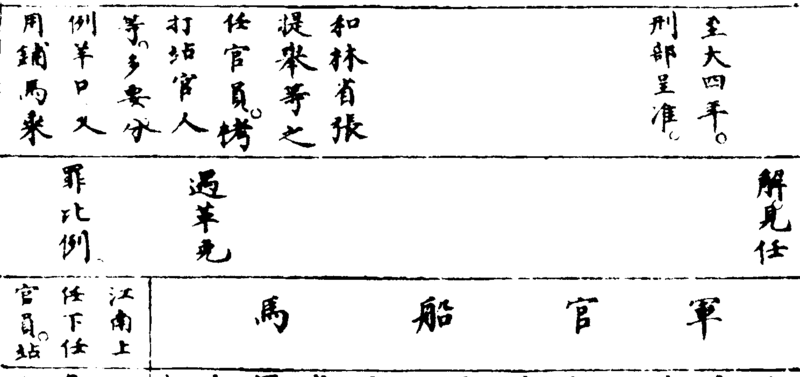 至大四年。
刑部呈准。
和林省張
提舉等之
任官員。拷
打站官人
等。多要分
例羊口又
用鋪馬乘
解見任
遇革免
罪比例。
軍官船馬
江南上
任下任
官員。站